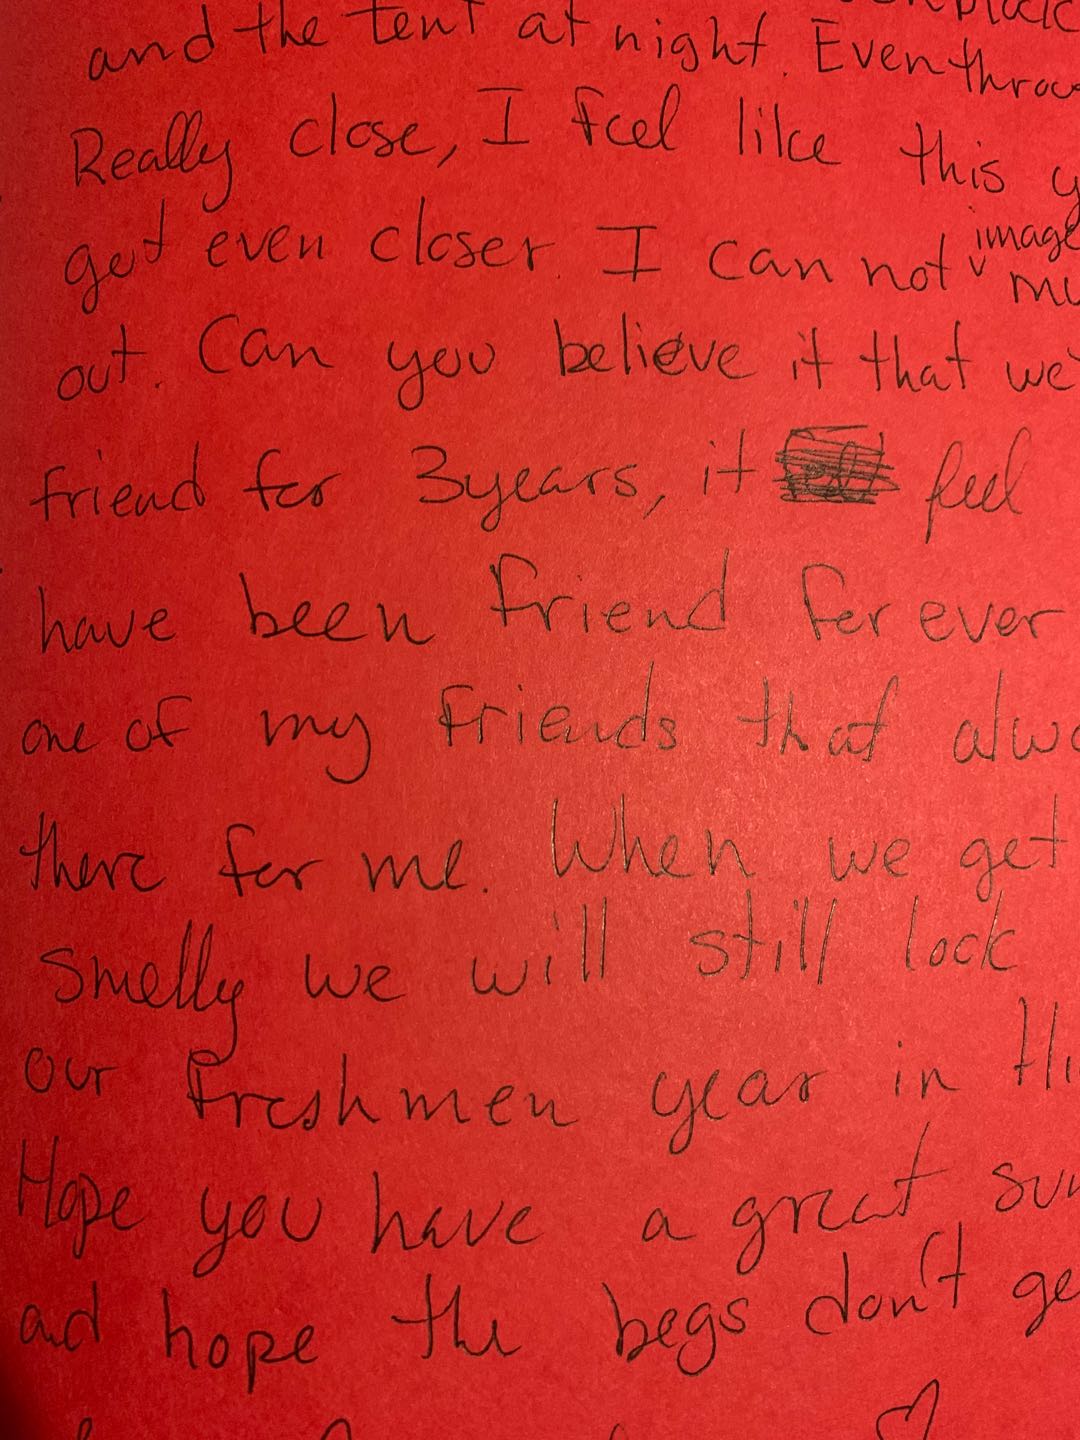 and the tent at night. Even
Really close, I feel like this
get even closer. I can not image
out. Can you believe it that
friend for 3years, it feel
have been friend for ever
one of my friends that
there for me. When we get
Smelly we will still
our freshmen year in
Hope you have a great
ad hope the begs don't